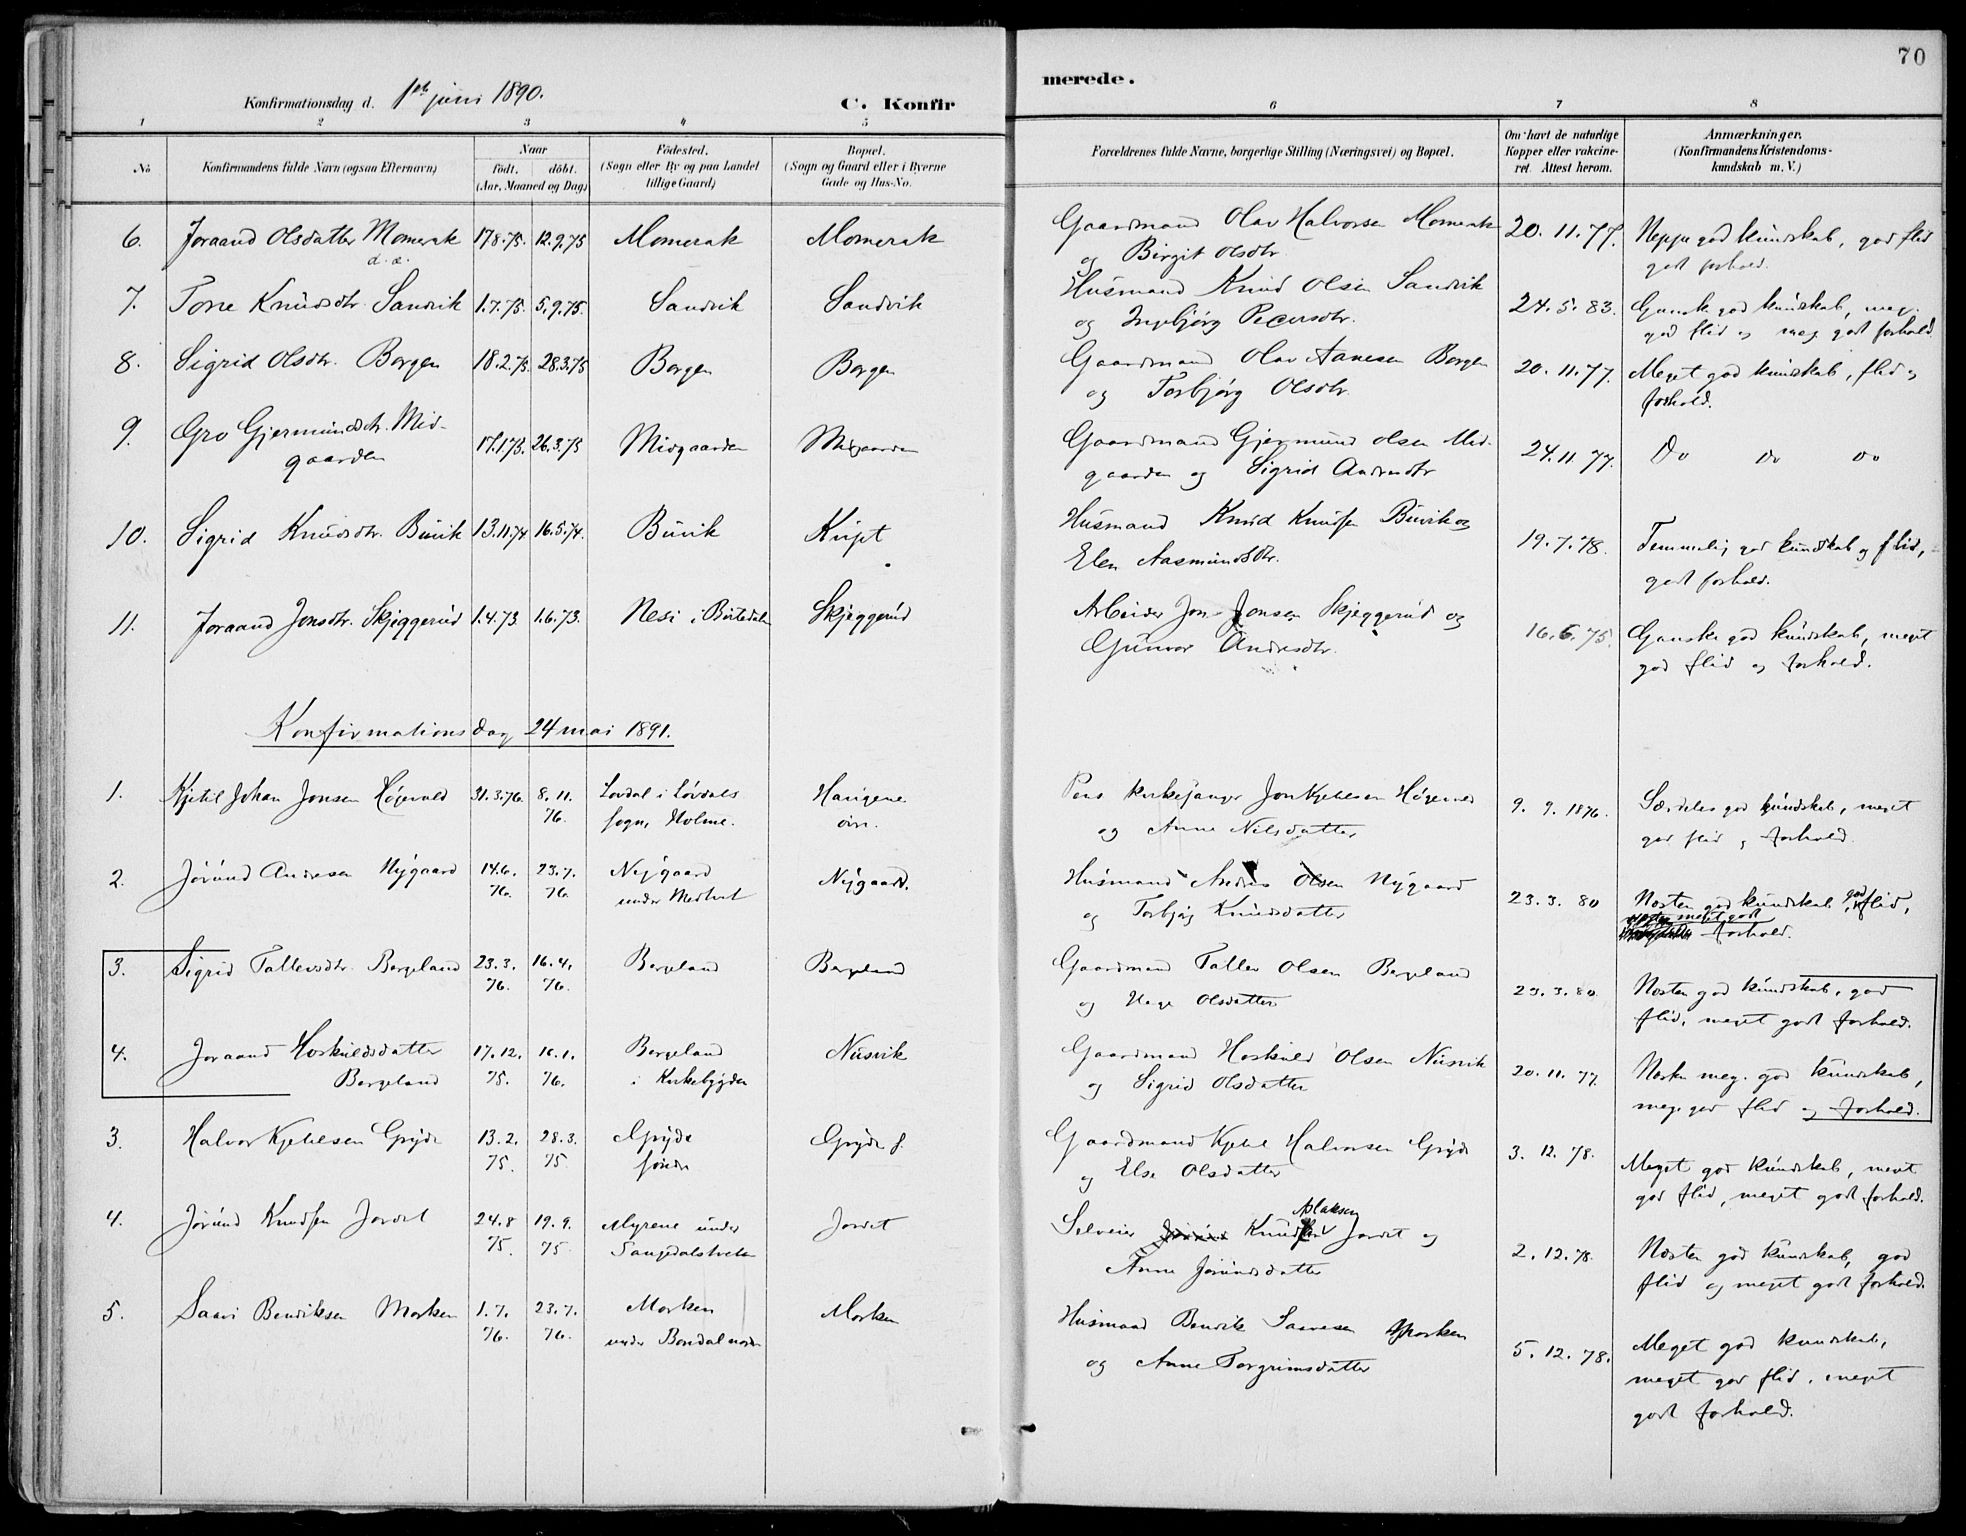 70
Konfirmationsdag d. 1ste juni 1890.
C. Konfir
merede.
1 2 3 4 5 6 7 8
No
Konfirmandens fulde Navn (ogsaa Efternavn)
Naar
födt. döbt.
(Aar, Maaned og Dag)
Födested.
(Sogn eller By og paa Landet
tillige Gaard)
Bopæl.
(Sogn og Gaard eller i Byerne
Gade og Hus-No.
Forældrenes fulde Navne, borgerlige Stilling (Næringsvei) og Bopæl.
Om havt de naturlige
Kopper eller vakcine-
ret. Attest herom.
Anmærkninger.
(Konfirmandens Kristendoms-
kundskab m. V.)
6. Joraand Olsdatter Momrak 17.8.75. 12.9.75 Momrak Momrak Gaardmand Olav Halvorsen Momrak 20.11.77. Neppe god kundskab, god flid
d. æ. og Birgit Olsdtr. godt forhold.
7. Tone Knudsdtr. Sandvik 1.7.75. 5.9.75. Sandvik Sandvik Husmand Knud Olsen Sandvik 24.5.83. Ganske god kundskab, meg.
og Ingebjörg Pedersdtr. god flid og meg. godt forhold
8. Sigrid Olsdtr. Borgen 18.2.75. 28.3.75 Borgen Borgen Gaardmand Olav Aanesen Borgen 20.11.77. Meget god kundskab, flid og
og Torbjörg Olsdtr. forhold.
9. Gro Gjermundsdtr. Mid- 17.1.75. 26.3.75 Midgaarden Midgaarden Gaardmand Gjermund Olsen Mid- 24.11.77. Do Do Do
gaarden gaarden og Sigrid Andresdtr
10. Sigrid Knudsdtr. Buvik 13.11.74 16.5.74. Buvik Husmand Knud Knutsen Buvik og 19.7.78. Temmelig god kundskab og flid,
Elen Aasmundsdtr. godt forhold.
11. Joraand Jonsdtr. Skjeggerud 1.4.73. 1.6.73. Nesi i Börtedalen Skjeggerud Arbeider Jon Jonsen Skjeggerud og 16.6.75. Ganske god kundskab, meget
Gunvor Andresdtr. god flid og forhold.
Konfirmationsdag 24 mai 1891.
1. Kjetil Johan Jonsen Högevold 31.3.76. 8.11. Lovdal i Lövdals Haugene Pens. Kirkesanger Jon Kjetilsen Högevold 9.9.1876. Særdeles god kundskab, meget
76. sogn, Holme. og Anne Nilsdatter god flid og forhold.
2. Jörund Andresen Nygaard 14.6. 23.7. Nygaard Nygaard. Husmand Andres Olsen Nygaard 23.3.80 Næsten god kundskab, god flid,
76. 76. under Medtvet og Torbjörg Knudsdatter næsten meget godt
forhold.
3. Sigrid Tallevsdtr. Bergeland 23.3. 16.4. Bergeland Bergeland Gaardmand Tallev Olsen Bergeland 23.3.80. Næsten god kundskab, god
76. 76. og Hæge Olsdatter flid, meget godt forhold.
4. Joraand Hoskuldsdatter 17.12. 16.1. Bergeland Nusvik Gaardmand Hoskuld Olsen Nusvik 20.11.77. Næsten meg. god kundskab,
Bergeland 75. 76. i Kirkebygden og Sigrid Olsdatter meg. god flid og forhold.
3. Halvor Kjetilsen Gryde 13.2. 28.3. Gryde Gryde s. Gaardmand Kjetil Halvorsen Gryde 3.12.78. Meget god kundskab, meget
75. 75. söndre og Else Olsdatter god flid, meget godt forhold.
4. Jörund Knudsen Jordet 24.8 19.9. Myrene under Jordet Selveier Knud Aslaksen Jordet og 2.12.78. Næsten god kundskab, god
75. 75 Anne Jörundsdatter flid og meget godt forhold.
5. Saavi Bendiksen Morken 1.7. 23.7. Morken Morken Husmand Bendik Saavesen Morken 5.12.78. Meget god kundskab,
76. 76. under Bondal nordre og Anne Torgrimsdatter meget god flid, meget
godt forhold.